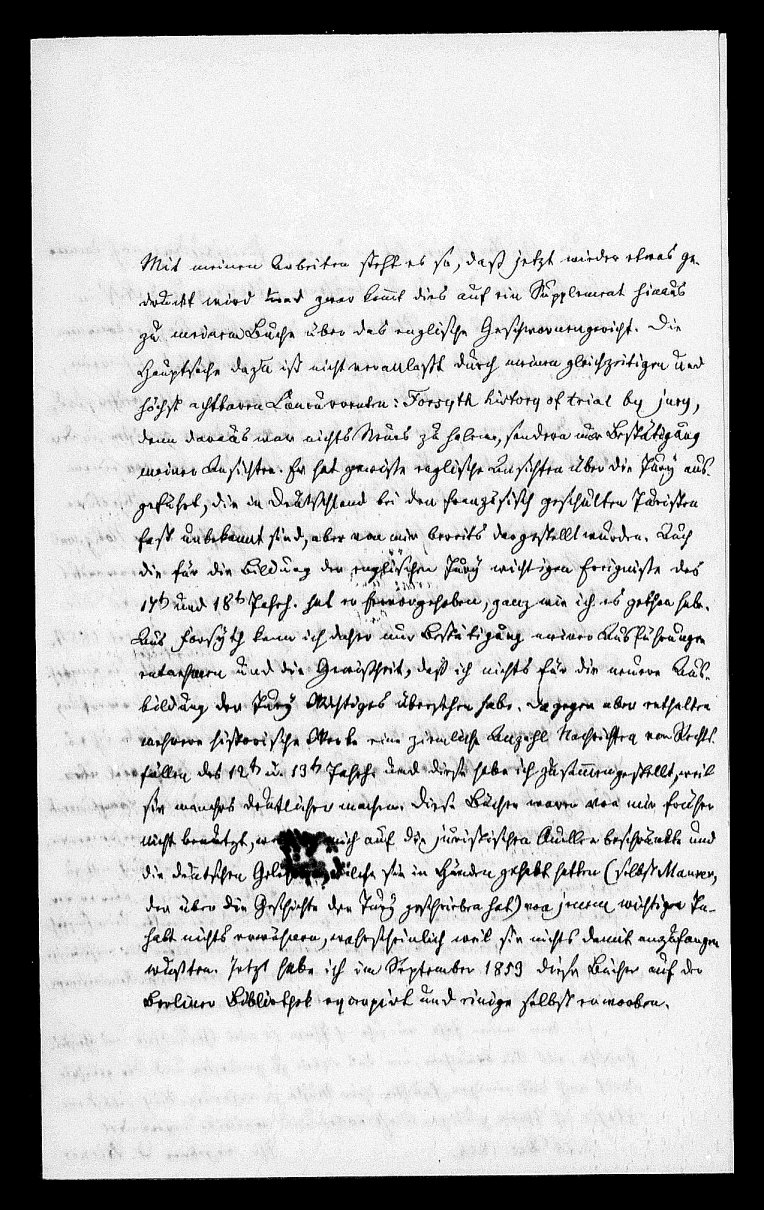 Mit meinen Arbeiten steht es so, daß jetzt wieder etwas ge-
druckt wird und zwar kommt dies auf ein Supplement hinaus
zu meinem Buche über das englische Geschwornengericht. Die
Hauptsache dazu ist nicht veranlaßt durch meinen gleichzeitigen und
höchst achtbaren Concurrenten: Forsyth history of trial by jury,
denn daraus war nichts Neues zu holen, sondern nur Bestätigung
meiner Ansichten. Er hat gewisse englische Ansichten über die Jury aus-
geführt, die in Deutschland bei den französisch geschulten Juristen
fast unbekannt sind, aber von mir bereits dargestellt wurden. Auch
die für die Bildung der englischen Jury wichtigen Ereignisse des
17t und 18t Jahrh. hat er hervorgehoben, ganz wie ich es gethan habe.
Aus Forsyth kann ich daher nur Bestätigung meiner Ausführungen
entnehmen und die Gewißheit, daß ich nichts für die neuere Aus-
bildung der Jury Wichtiges übersehen habe. Dagegen aber enthalten
mehrere historische Werke eine ziemliche Anzahl Nachrichten von Rechts-
fällen des 12t u. 13t Jahrh. und diese habe ich zusammengestellt, weil
sie manches deutlicher machen. Diese Bücher waren von mir früher
nicht benutzt, mich auf die juristischen Quellen beschränkte und
die deutschen welche sie in Händen gehabt hatten (selbst Maurer,
der über die Geschichte der Jury geschrieben hat) von jenem wichtigen In-
halt nichts erwähnen, wahrscheinlich weil sie nichts damit anzufangen
wußten. Jetzt habe ich im September 1853 diese Bücher auf der
Berliner Bibliothek excerpirt und einige selbst erworben.